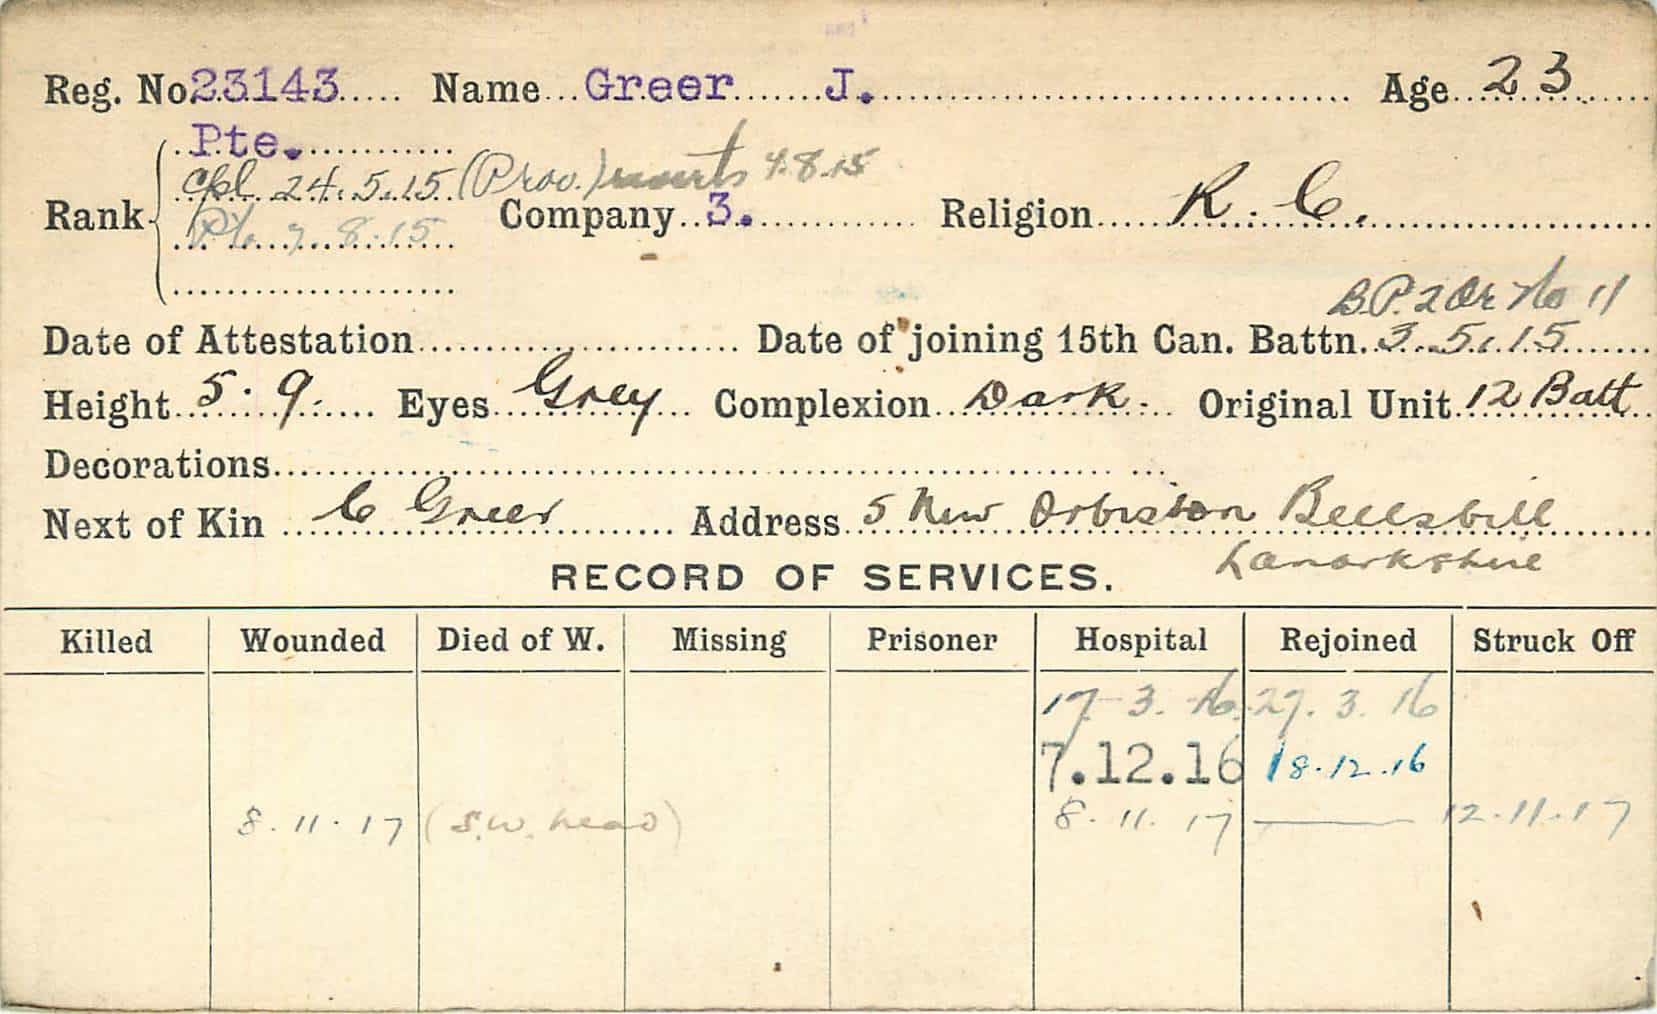 Reg. No 23143 Name Greer J. Age 23
Pte.
Cpl. 24.5.15 (Prov.) reverts 4.8.15
Rank Company 3. Religion R. C.
Pte 7.8.15
B.P. 2 Or No 11
Date of Attestation Date of joining 15th Can. Battn. 3.5.15
Height 5.9. Eyes Grey Complexion Dark. Original Unit 12 Batt
Decorations
Next of Kin C Greer Address 5 New Orbiston Bellshill
Lanarkshire
RECORD OF SERVICES.
Killed Wounded Died of W. Missing Prisoner Hospital Rejoined Struck Off
17-3.16. 27.3.16
7.12.16 18.12.16
8.11.17 (S.W. head) 8.11.17 12.11.17